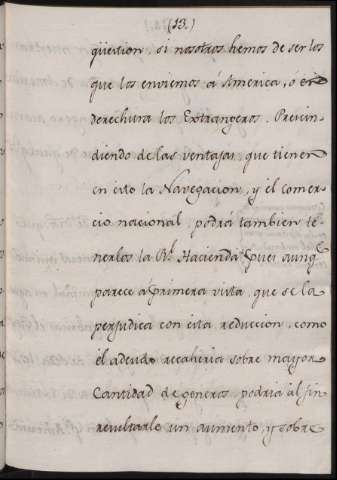 (13.)
qüestion, si nosotros hemos de ser los
que los enviemos á America, ó en
derechura los Extrangeros. Prescin
diendo de las ventajas, que tienen
en esto la Navegacion, y el comer
cio nacional, podrá tambien te
nerlas la Rl. Hacienda; pues aunqe
parece á primera vista, que se la
perjudica con esta reduccion, como
el adeudo recaheria sobre mayor
Cantidad de generos, podria al fin
resultarle un aumento, y sobre